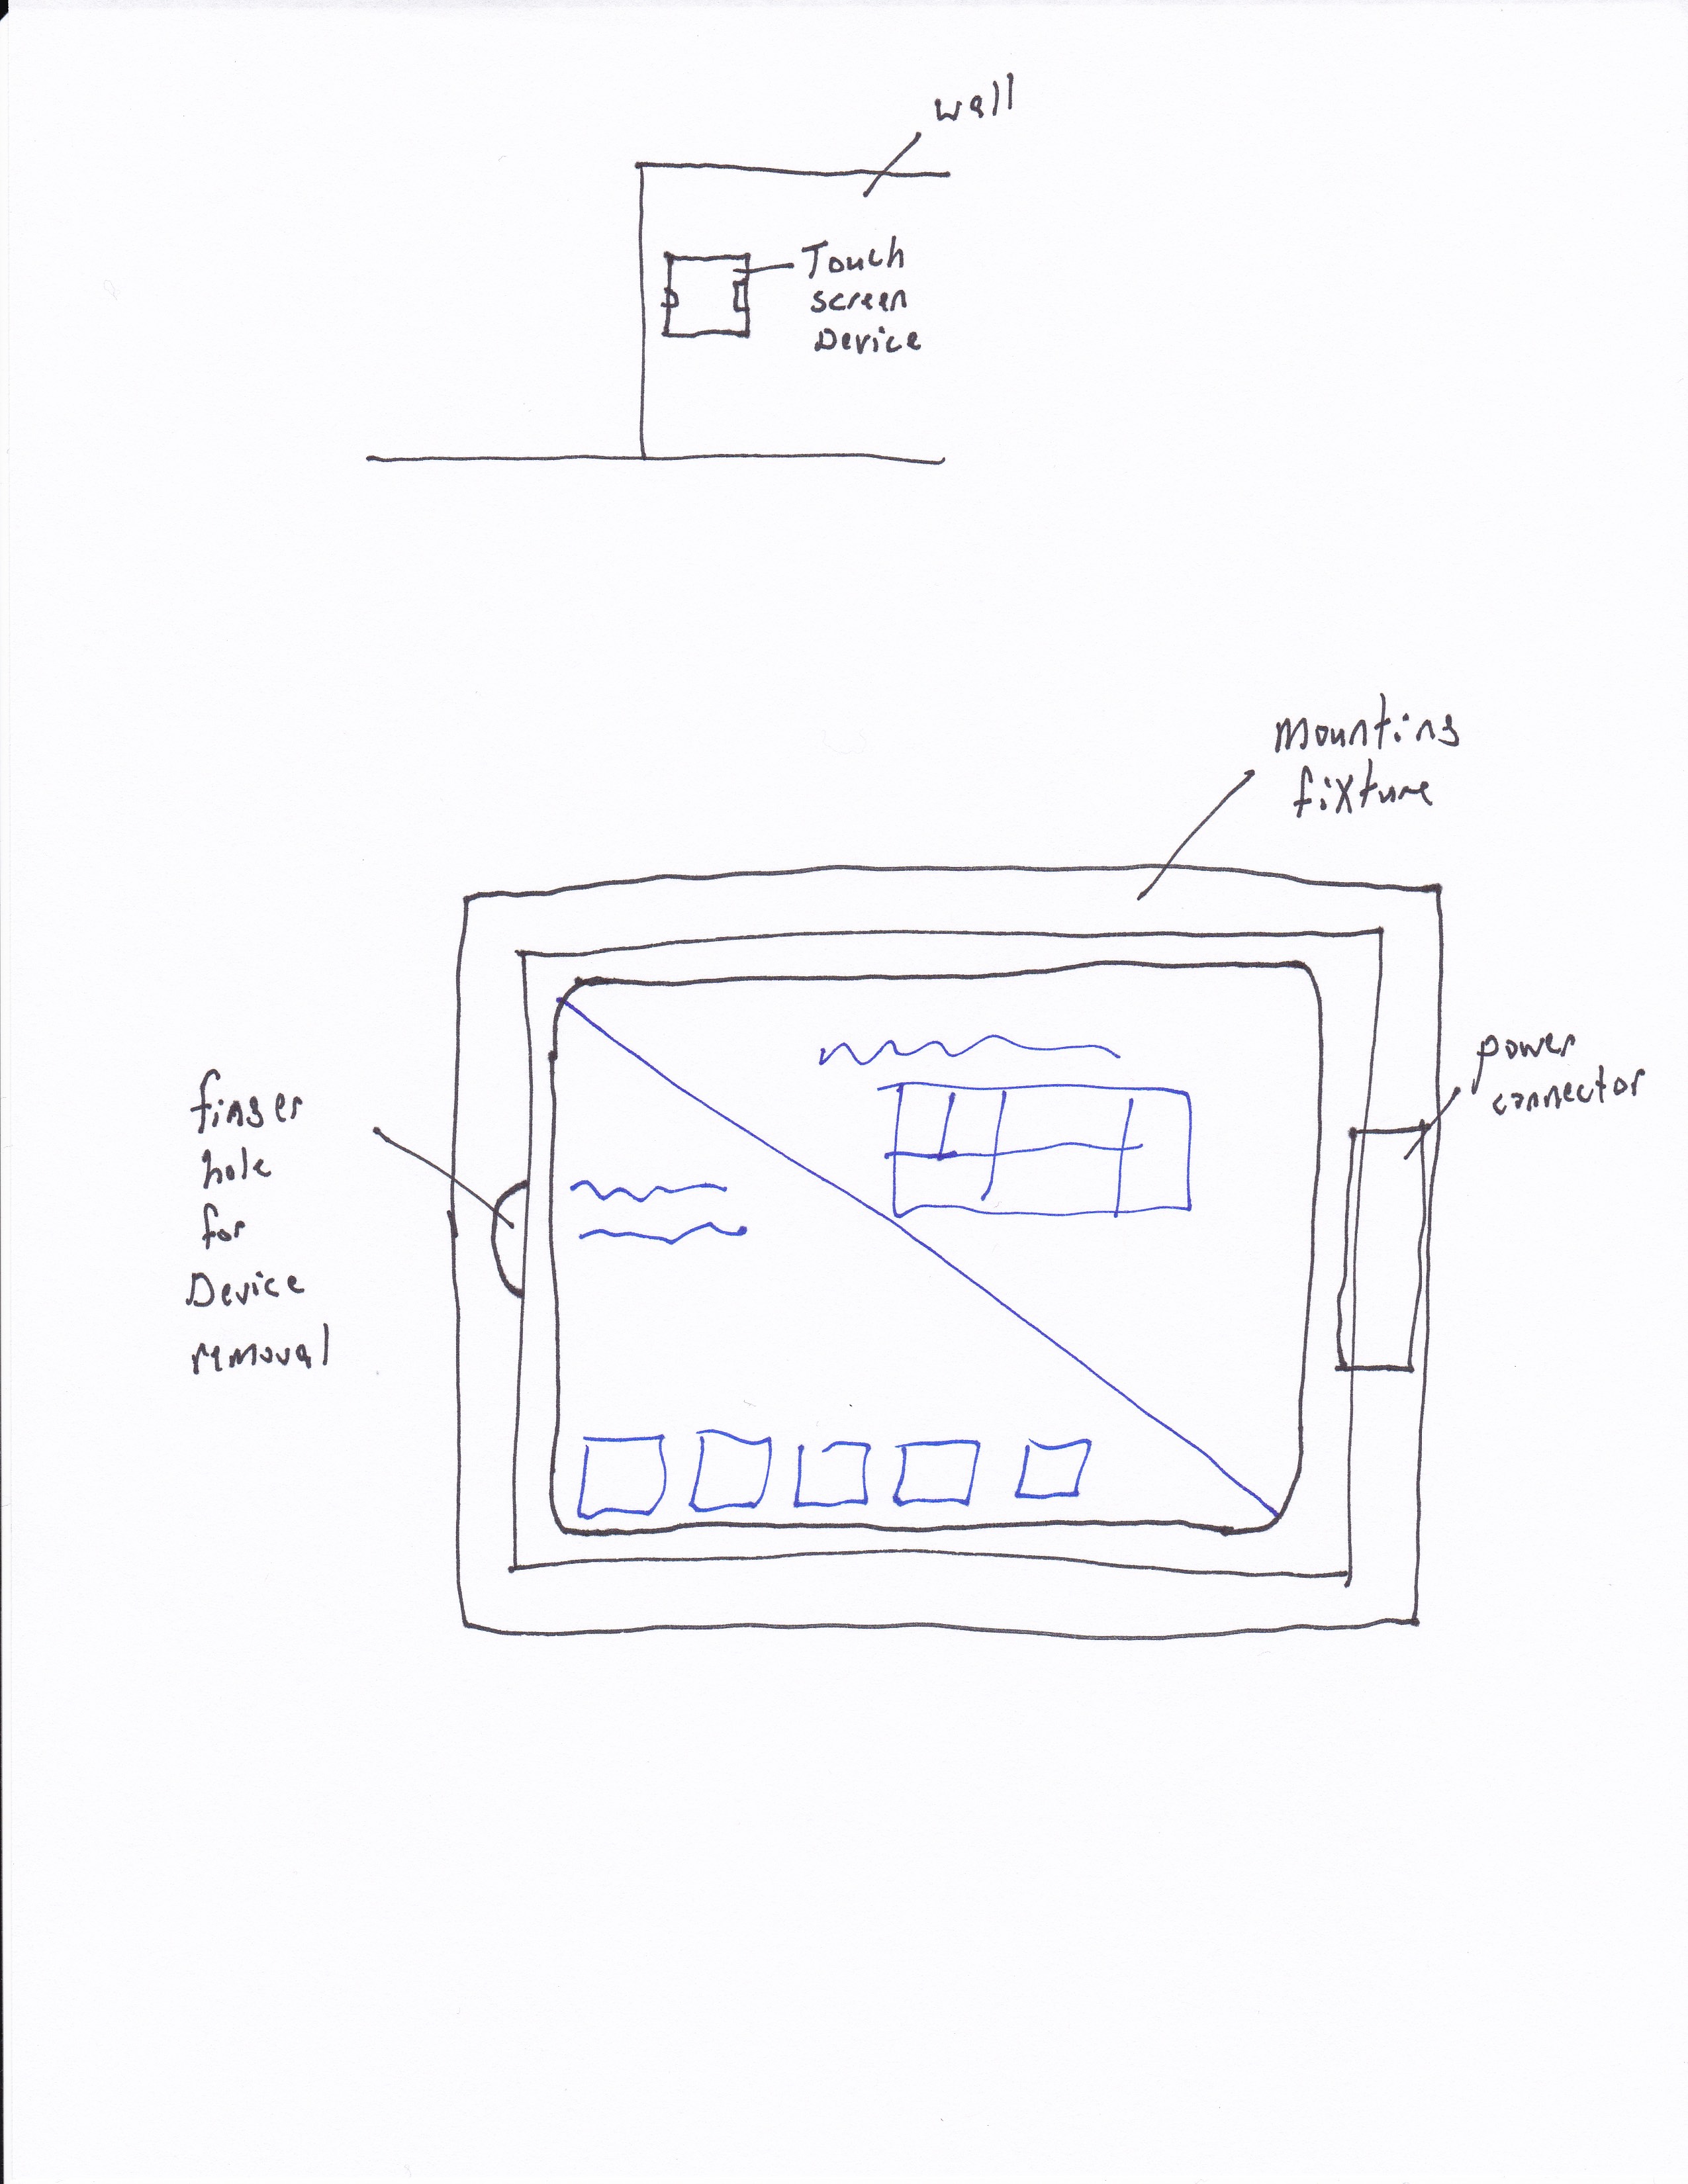 wall
Touch
screen
Device
Mounting
fixture
power
connector
finger
hole
for
Device
removal